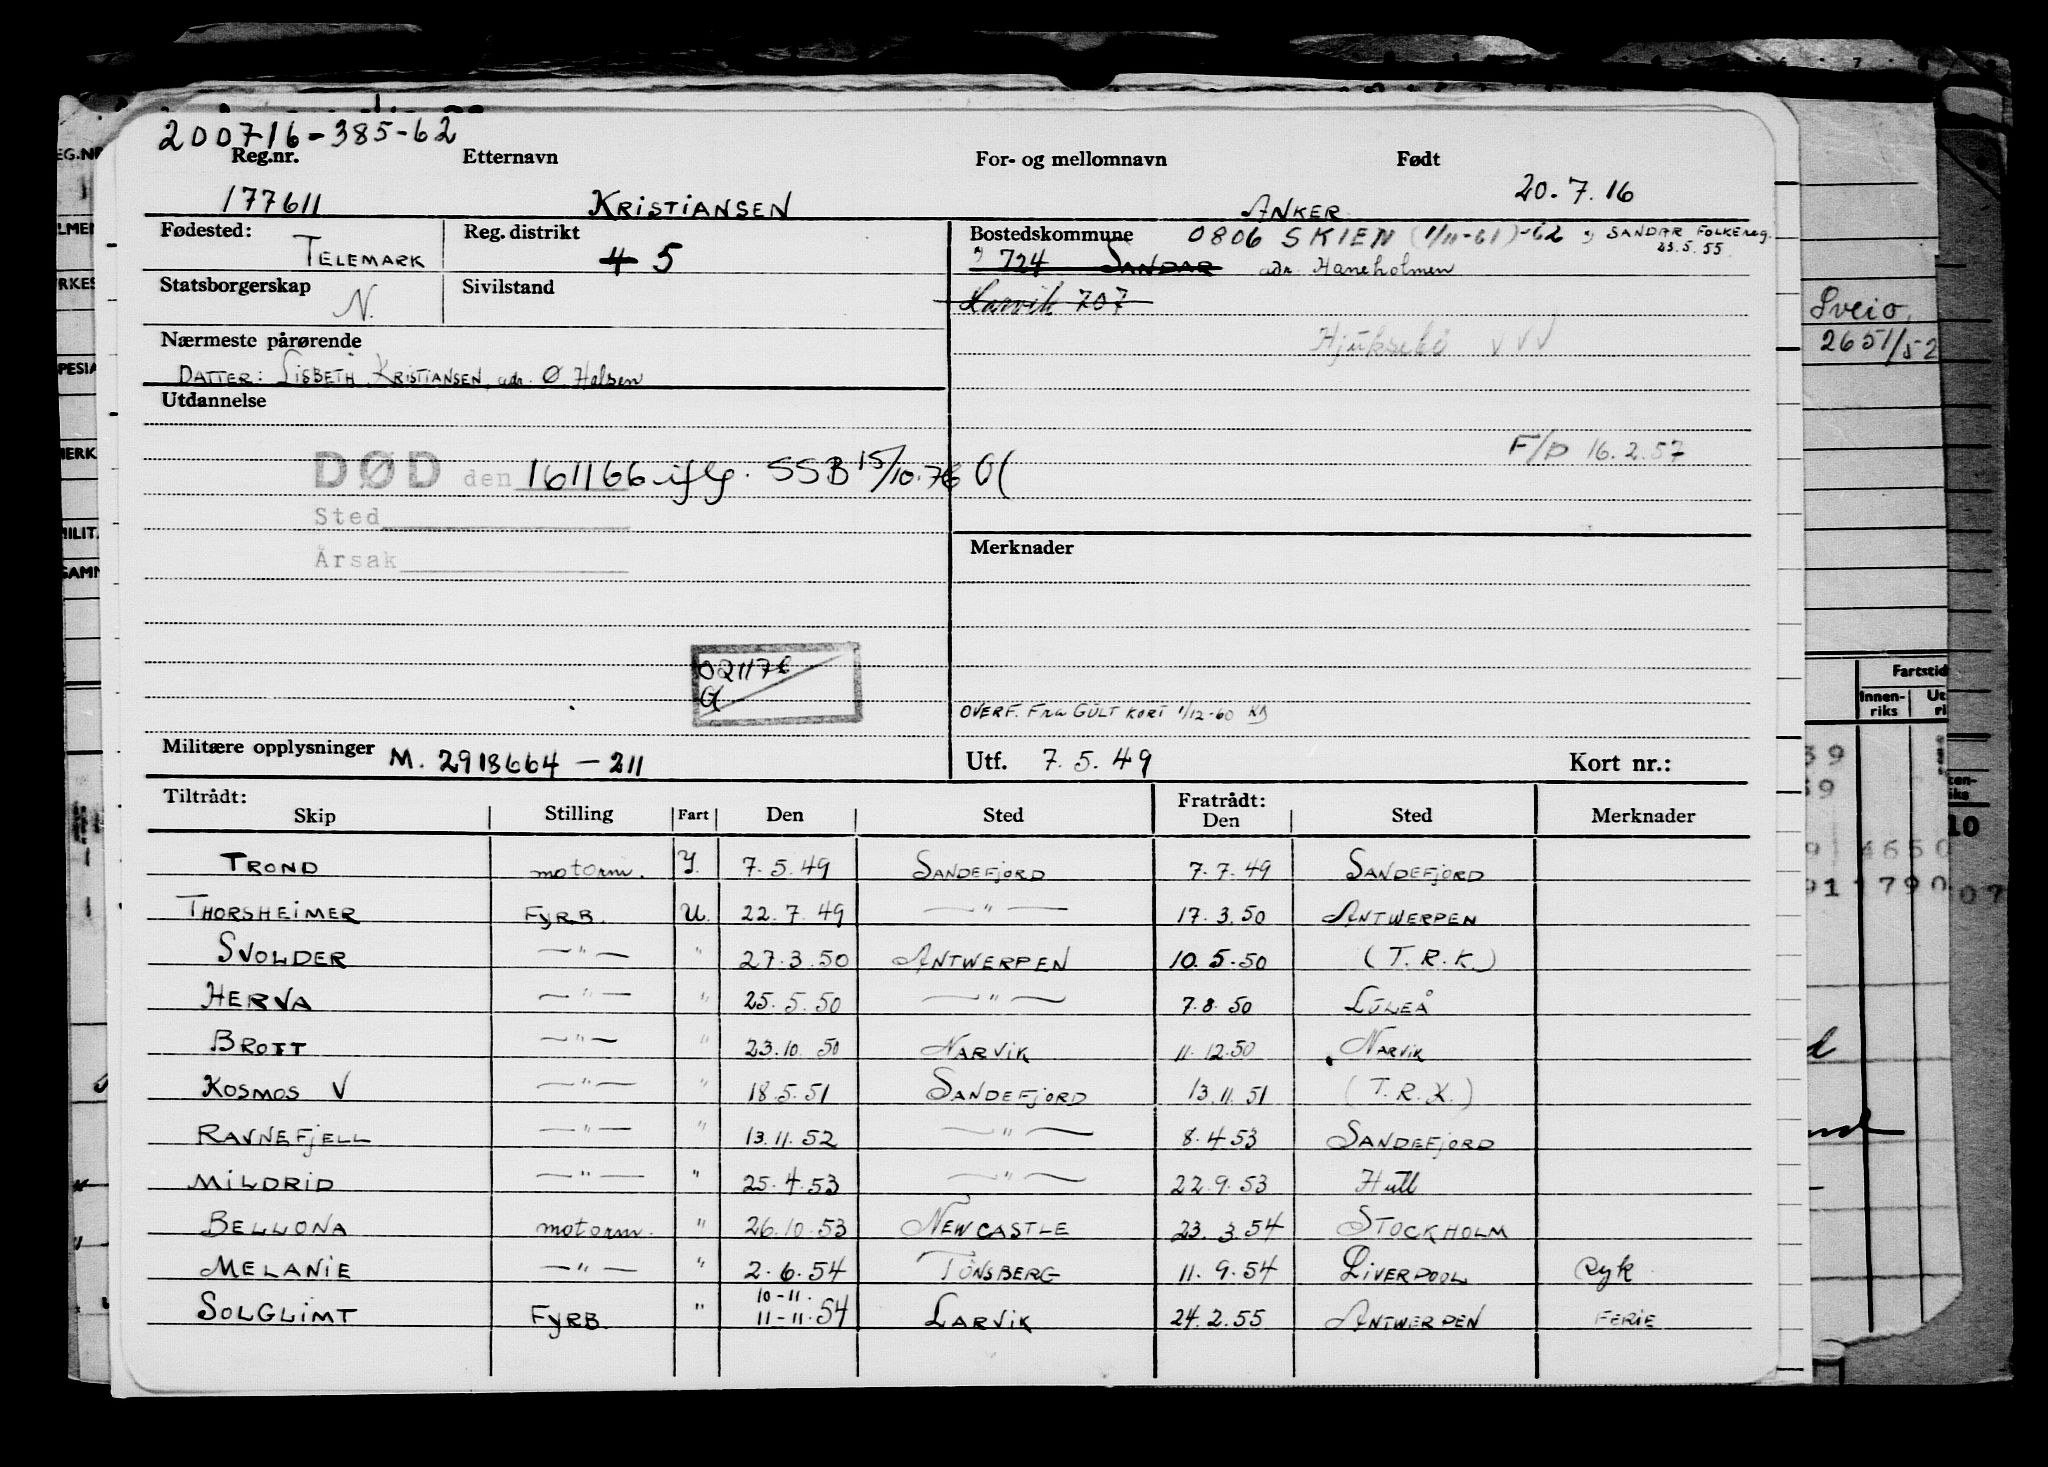 200716-385-62
Reg.nr. Etternavn For- og mellomnavn Født
177611 KRISTIANSEN ANKER 20.7.16
Fødested: TELEMARK Reg. distrikt 4 5 Bostedskommune 0806 SKIEN (1/11-61)-62 SANDAR FOLKEREG. 23.5.55
724 SANDAR adr. Haneholmen
Statsborgerskap N. Sivilstand Larvik 707
Nærmeste pårørende Hjuksebö VVV
DATTER: LISBETH KRISTIANSEN, adr. Ø Halsen
Utdannelse
F/D 16.2.57
DØD den 161166 iflg. SSB 15/10.76
Sted
Årsak
Merknader
02117
OVERF. FRA GULT KORT 1/12-60
Militære opplysninger M. 2918664-211 Utf. 7.5.49 Kort nr.:
Tiltrådt: Fratrådt:
Skip Stilling Fart Den Sted Den Sted Merknader
TROND motorm. 7.5.49 SANDEFJORD 7.7.49 SANDEFJORD
THORSHEIMER FYRB. U. 22.7.49 —"— 17.3.50 ANTWERPEN
SVOLDER —"— " 27.3.50 ANTWERPEN 10.5.50 (T.R.K.)
HERVA —"— " 25.5.50 —"— 7.8.50 LULEÅ
BROTT —"— " 23.10.50 NARVIK 11.12.50 NARVIK
KOSMOS V —"— " 18.5.51 SANDEFJORD 13.11.51 (T.R.K.)
RAVNEFJELL —"— " 13.11.52 —"— 8.4.53 SANDEFJORD
MILDRID —"— " 25.4.53 —"— 22.9.53 Hull
BELLONA motorm. " 26.10.53 NEWCASTLE 23.3.54 STOCKHOLM
MELANIE —"— " 2.6.54 TÖNSBERG 11.9.54 LIVERPOOL syk
10-11.
SOLGLIMT FYRB. " 11-11.54 LARVIK 24.2.55 ANTWERPEN FERIE
Sveio,
2651/52
Fartstid
Innen-
riks